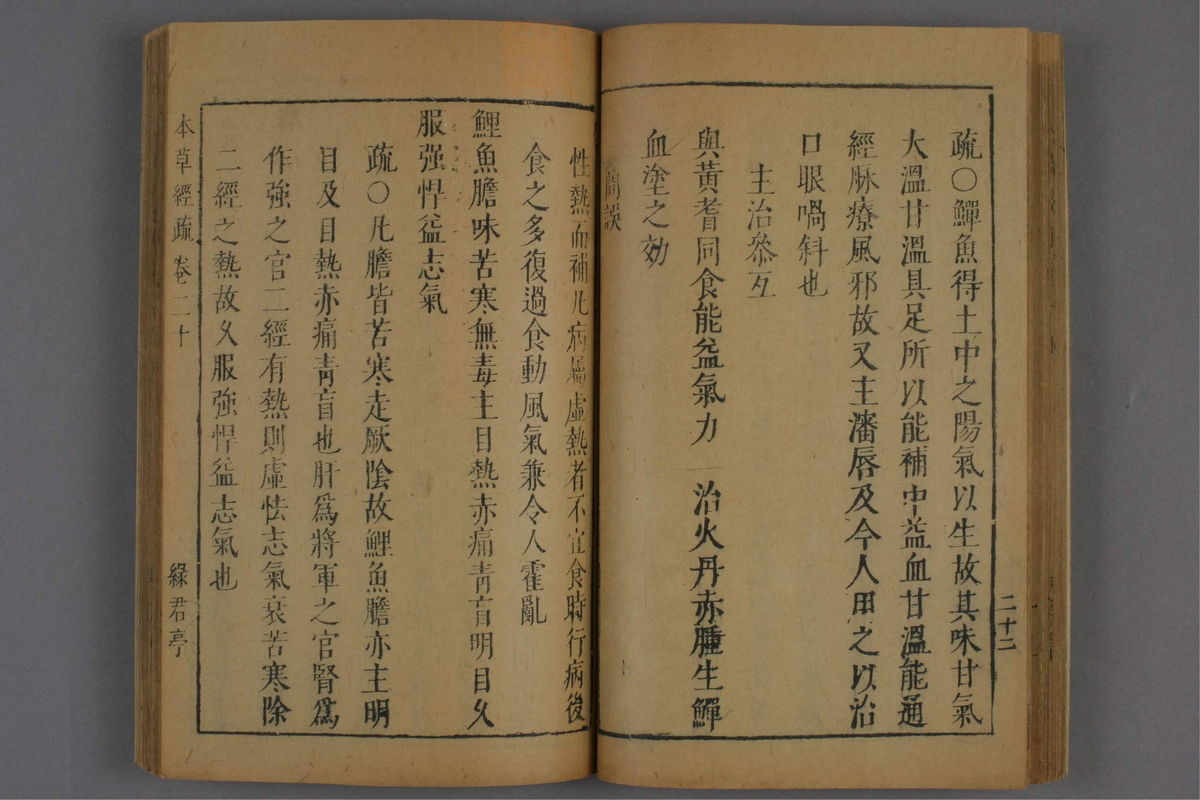 疏○鱓魚得土中之陽氣以生故其味甘氣
大溫甘溫具足所以能補中益血甘溫能通
經脉療風邪故又主瀋唇及今人用之以治
口眼喎斜也
主治叅互
與黃耆同食能益氣力 治火丹赤腫生鱓
血塗之効
簡誤
二十二
性熱而補凡病屬虛熱者不宜食時行病後
食之多復過食動風氣兼令人霍亂
鯉魚膽味苦寒無毒主目熱赤痛青盲明目久
服强悍益志氣
疏○凡膽皆苦寒走厥陰故鯉魚膽亦主明
目及目熱赤痛青盲也肝爲將軍之官腎爲
作強之官二經有熱則虛怯志氣衰苦寒除
二經之熱故久服強悍益志氣也
本草經疏卷二十 綠君亭